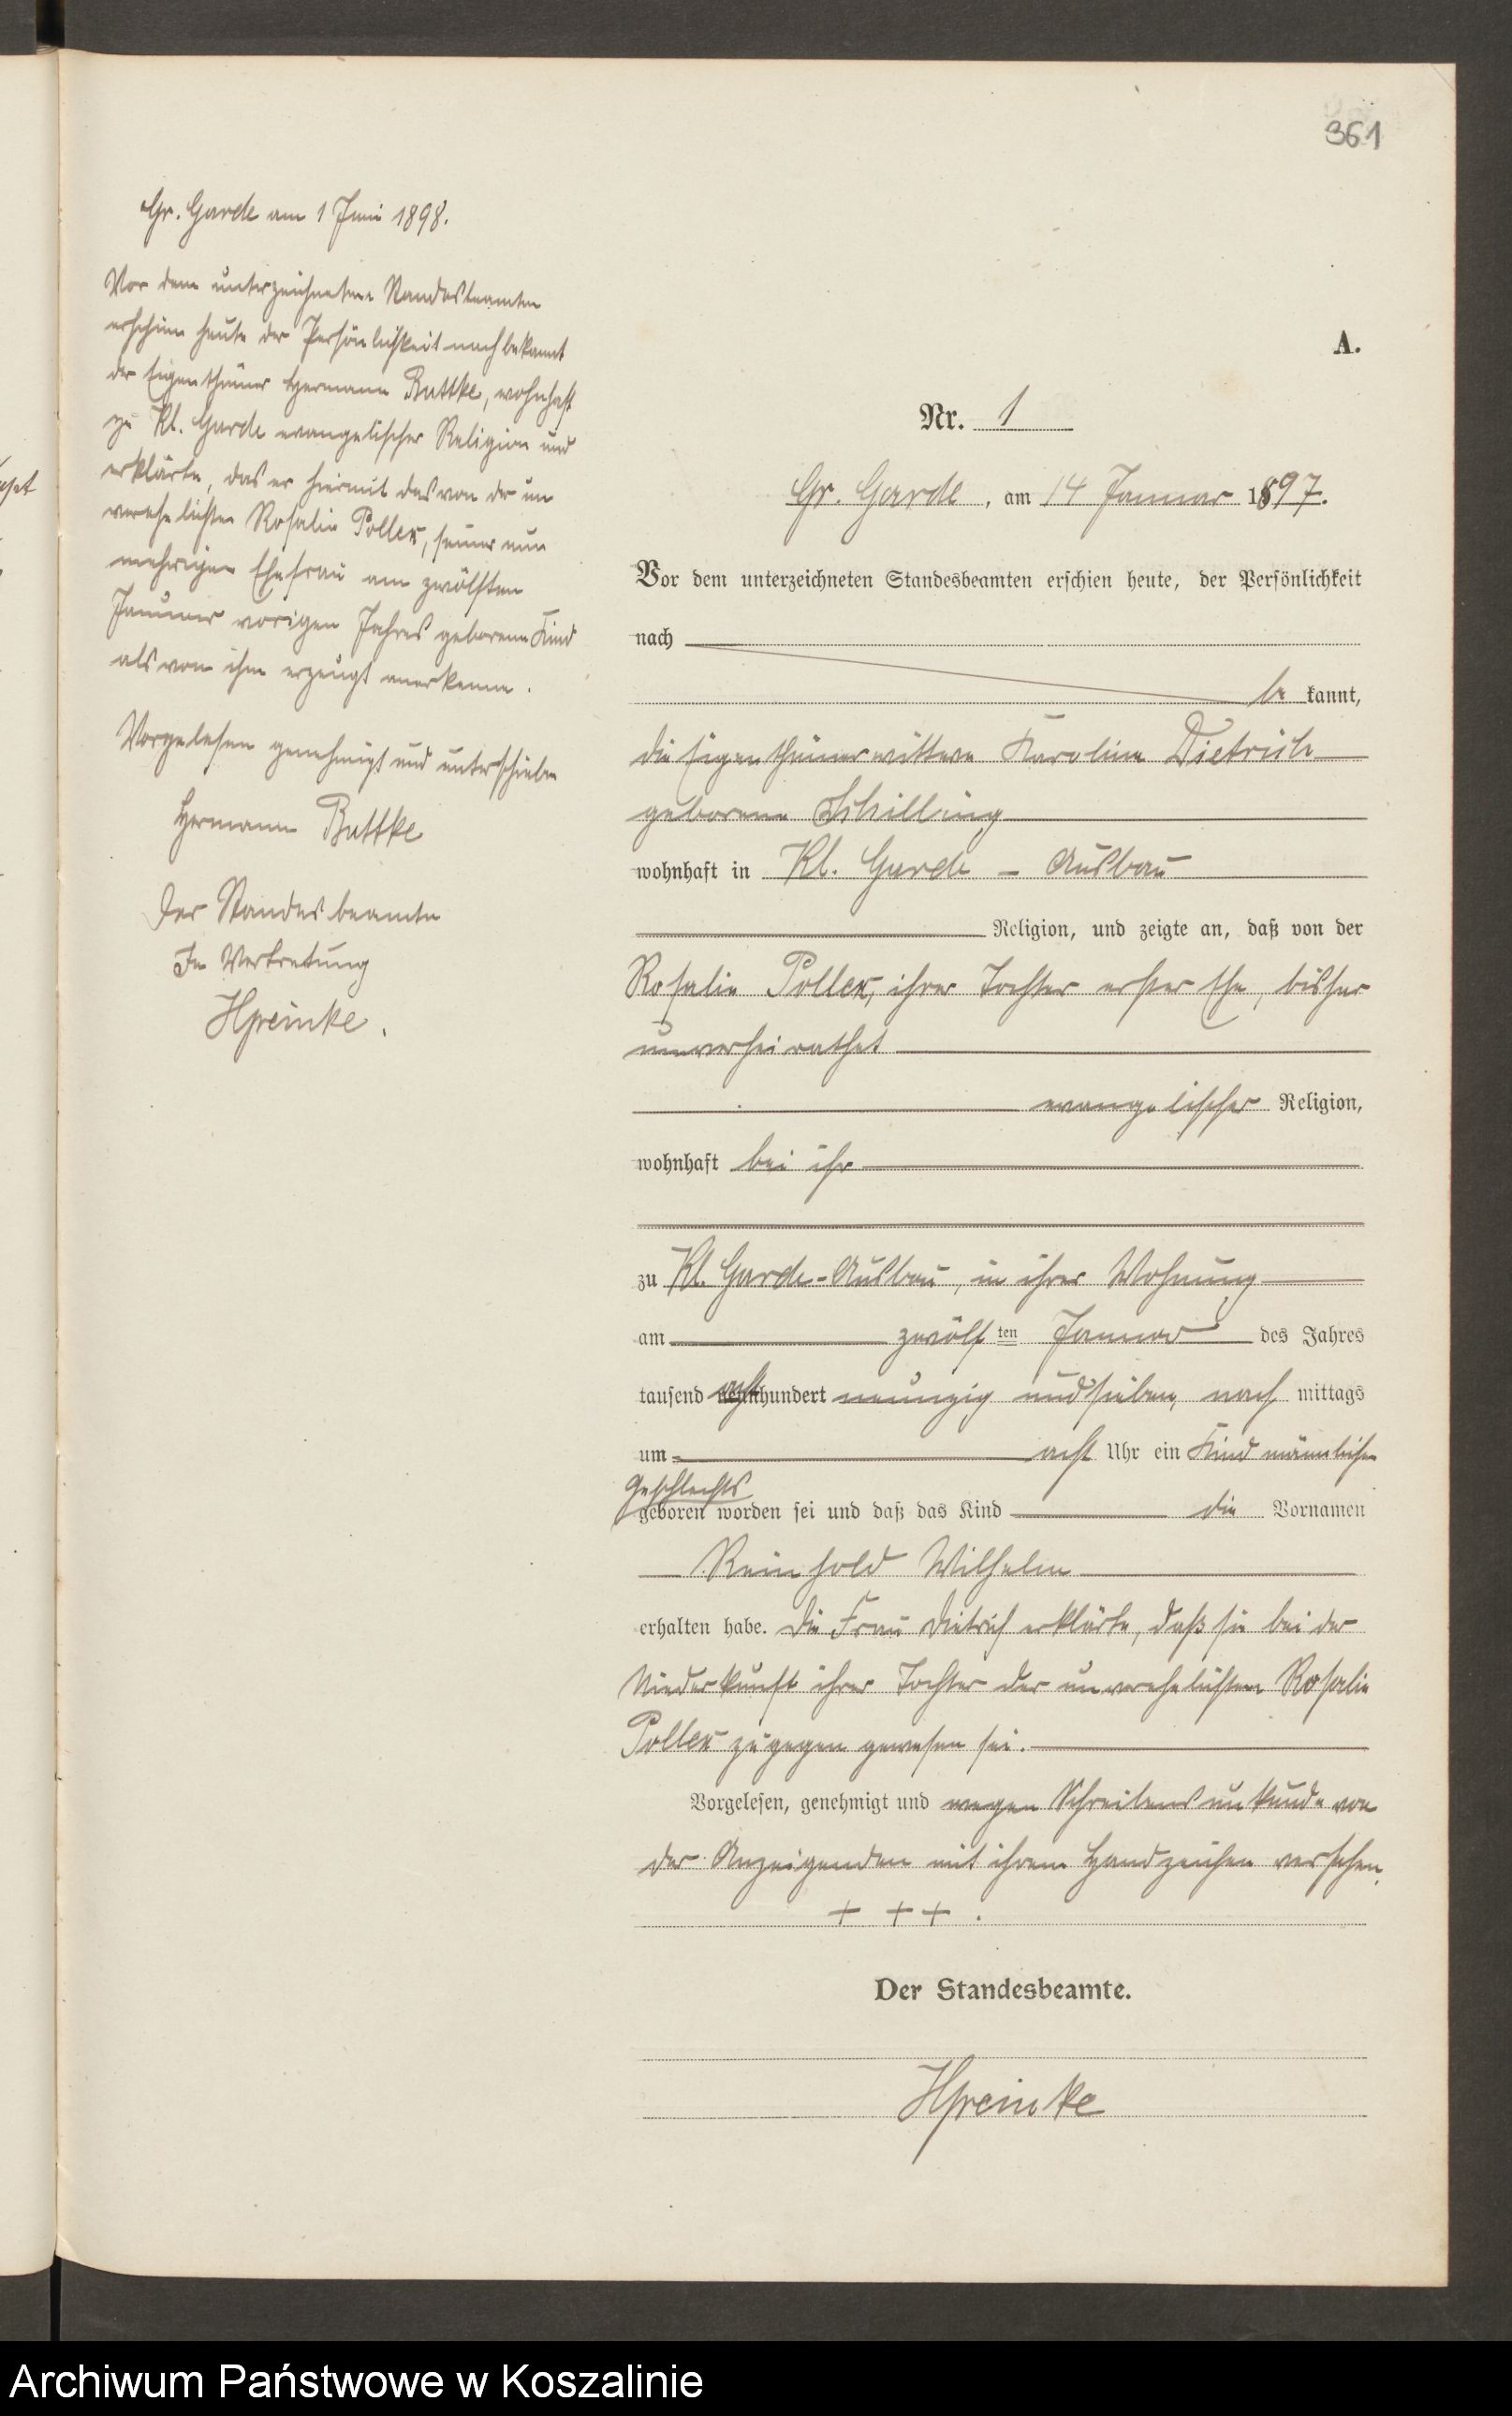 361
Gr. Garde am 1 Juni 1898.
Vor dem unterzeichneten Standesbeamten
erschien heute der Persönlichkeit nach bekannt
der Eigenthümer Hermann Buttke, wohnhaft
zu Kl. Garde evangelischer Religion und
erklärte, das er hiermit das von der un
verehelichten Rosalie Poller, seiner nun
mehrigen Ehefrau am zwölften
Januar vorigen Jahres geborene Kind
als von ihm erzeugt anerkenne.
Vorgelesen genehmigt und unterschrieben
Hermann Buttke
Der Standesbeamte
In Vertretung
A.
Nr. 1
Gr. Garde, am 14 Januar 1897.
Vor dem unterzeichneten Standesbeamten erschien heute, der Persönlichkeit
nach
be kannt,
die Eigenthümerwittwe Karoline Dietrich
geborene Schilling
wohnhaft in Kl. Garde - Ausbau
Religion, und zeigte an, daß von der
Rosalie Poller, ihrer Tochter erster Ehe, bisher
unverheirathet
evangelischer Religion,
wohnhaft bei ihr
zu Kl. Garde-Ausbau, in ihrer Wohnung
am zwölf ten Januar des Jahres
tausend acht hundert neunzig und sieben, nach mittags
um acht Uhr ein Kind männlichen
Geschlechts
geboren worden sei und daß das Kind die Vornamen
Reinhold Wilhelm
erhalten habe. Die Frau Dietrich erklärte, daß sie bei der
Niederkunft ihrer Tochter der unverehelichten Rosalie
Poller zugegen gewesen sei.
Vorgelesen, genehmigt und wegen Schreibensunkunde von
der Anzeigenden mit ihrem Handzeichen versehen.
+ + + .
Der Standesbeamte.
Archiwum Państwowe w Koszalinie